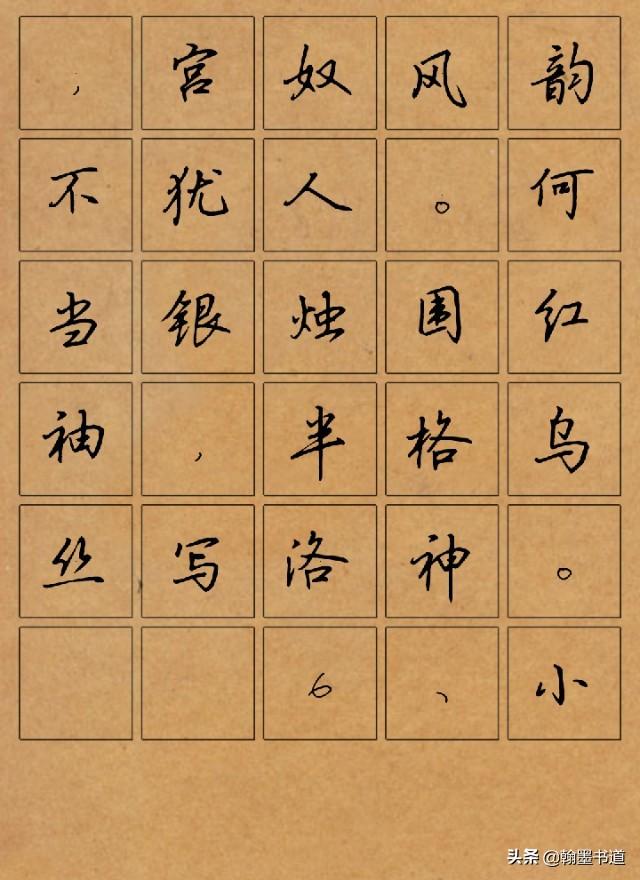 ，宫奴风韵
不犹人。何
当银烛围红
袖，半格乌
丝写洛神。
6、小
头条 @翰墨书道